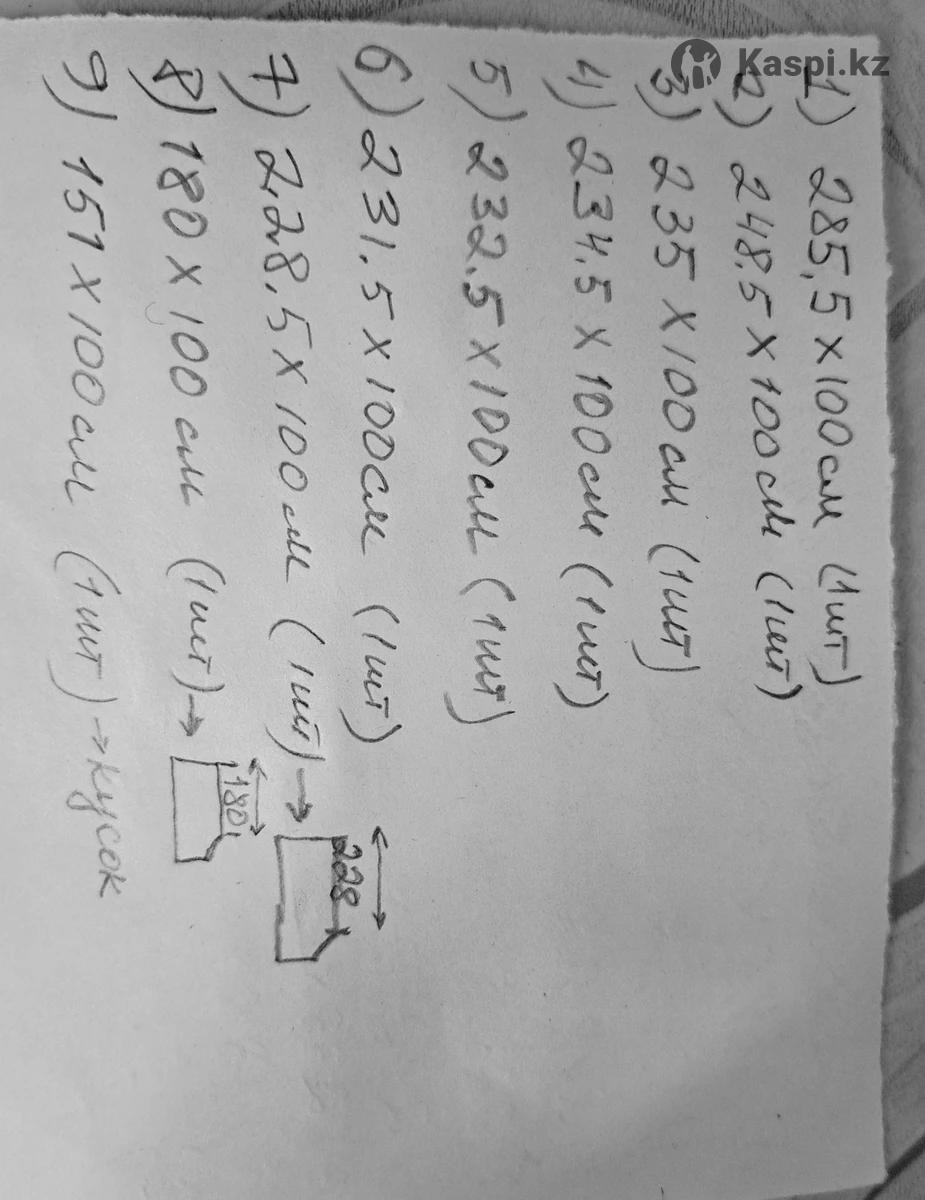 Kaspi.kz
1) 285,5 x 100см (1шт)
2) 248.5 x 100см (1шт)
3) 235 x 100см (1шт)
4) 234.5 x 100см (1шт)
5) 232.5 x 100см (1шт)
6) 231.5 x 100см (1шт)
7) 228.5 x 100см (1шт) → 228
8) 180 x 100см (1шт) → 180
9) 151 x 100см (1шт) → кусок